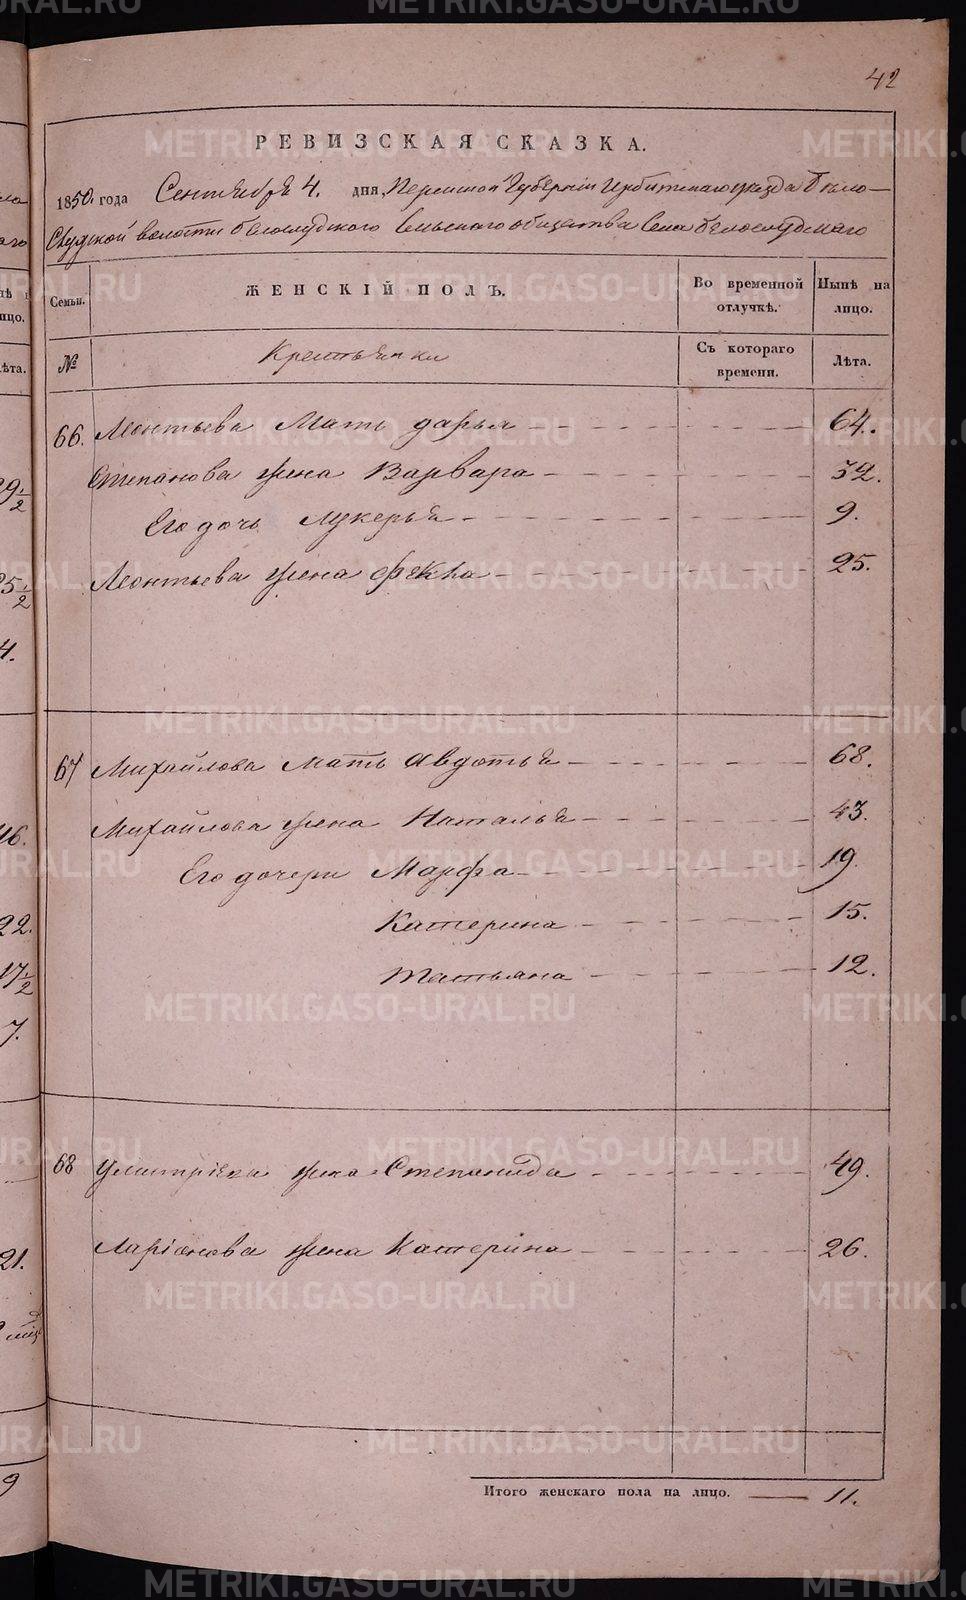 42
РЕВИЗСКАЯ СКАЗКА.
1850. года Сентября 4. дня, Пермской Губернии Ирбитскаго уезда Бело-
слудской волости белослудского сельскаго общества села белослудскаго
Семьи. ЖЕНСКІЙ ПОЛЪ. Во временной отлучкѣ. Нынѣ на лицо.
№ Крестьянки Съ котораго времени. Лѣта.
66. Леонтьева Мать дарья 64.
Степанова жена Варвара 32.
Его дочь Лукерья 9.
Леонтьева жена фекла 25.
67 Михайлова Мать авдотья 68.
Михайлова жена Наталья 43.
Его дочери Марфа 19
Катерина 15.
татьяна 12.
68 жена Степанида 49.
Ларіонова жена Катерина 26.
Итого женскаго пола на лицо. 11.
29 1/2
25 1/2
4.
46.
22.
17 1/2
7.
21.
9
METRIKI.GASO-URAL.RU